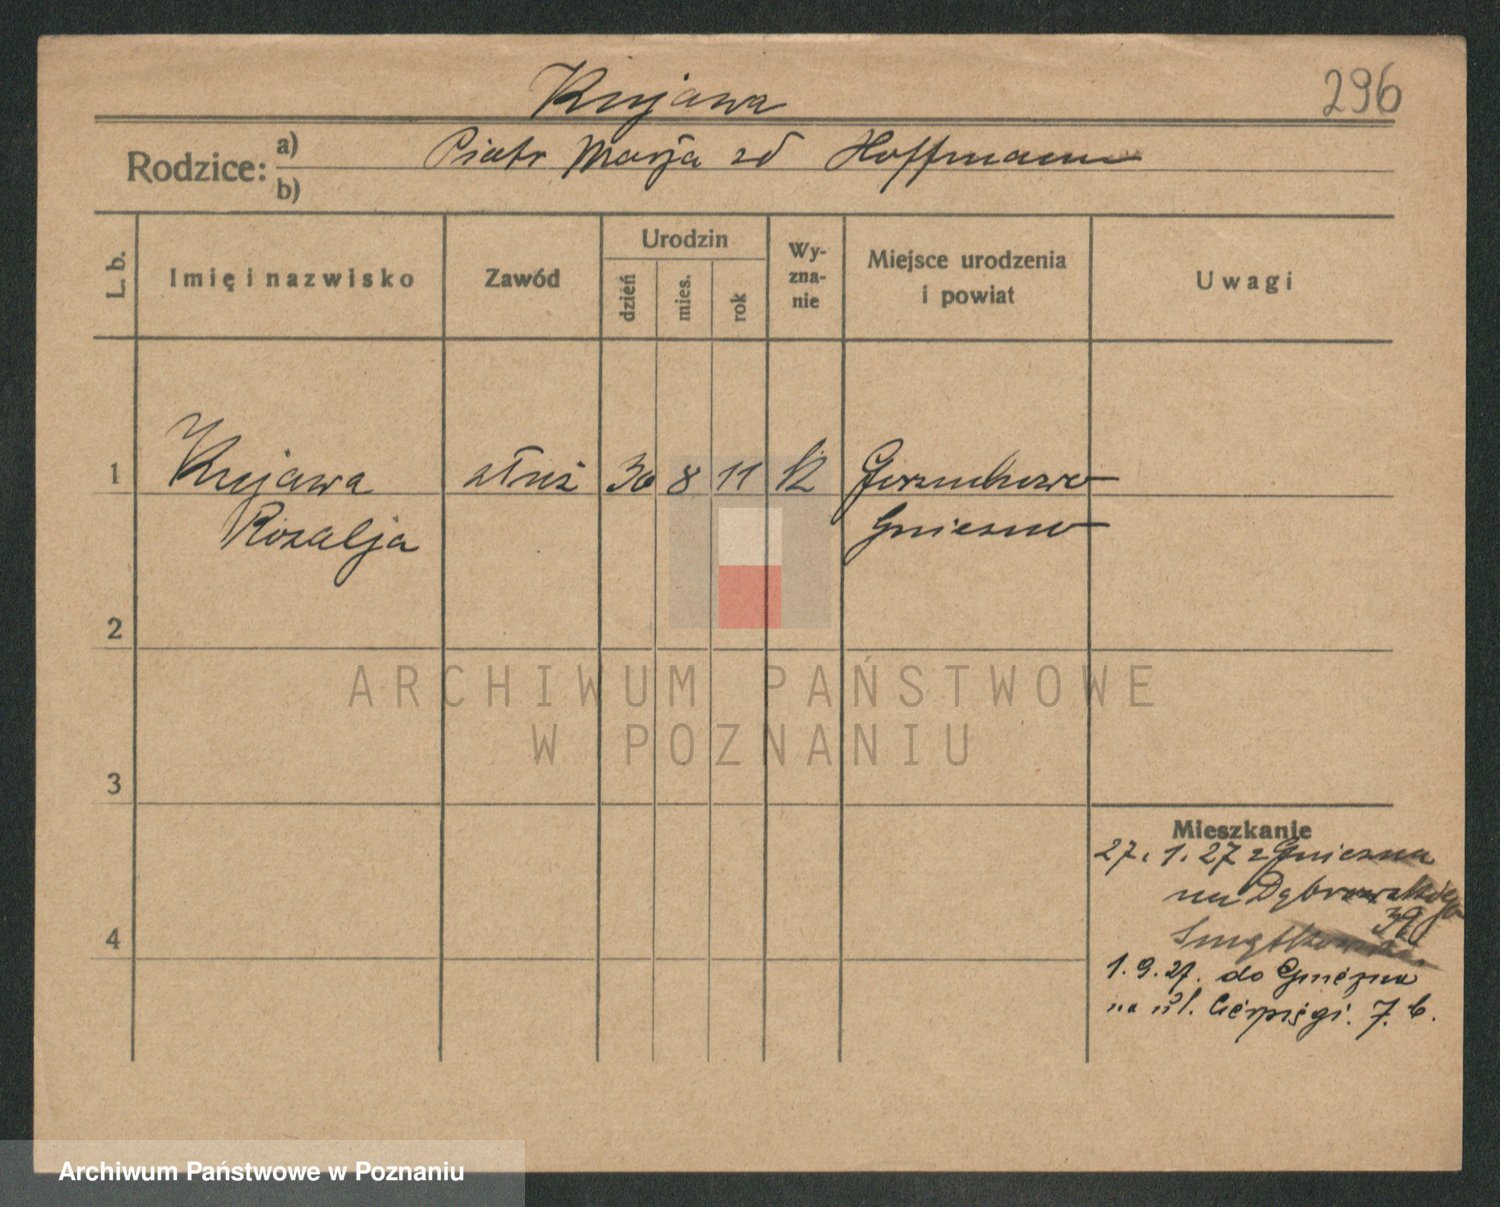 Kujawa
296
Rodzice: a) b)
Piotr Marja zd Hoffmann
L. b.
Imię i nazwisko
Zawód
Urodzin
dzień
mies.
rok
Wy-
zna-
nie
Miejsce urodzenia
i powiat
Uwagi
1 Kujawa służ 30 8 11 k Gorzuchowo
Rozalja Gniezno
2
ARCHIWUM PAŃSTWOWE
W POZNANIU
3
Mieszkanie
27. 1. 27 z Gniezna
na Dąbrowskiego
39
4
1. 9. 27. do Gniezna
na ul. Cierpięgi. 7. b.
Archiwum Państwowe w Poznaniu